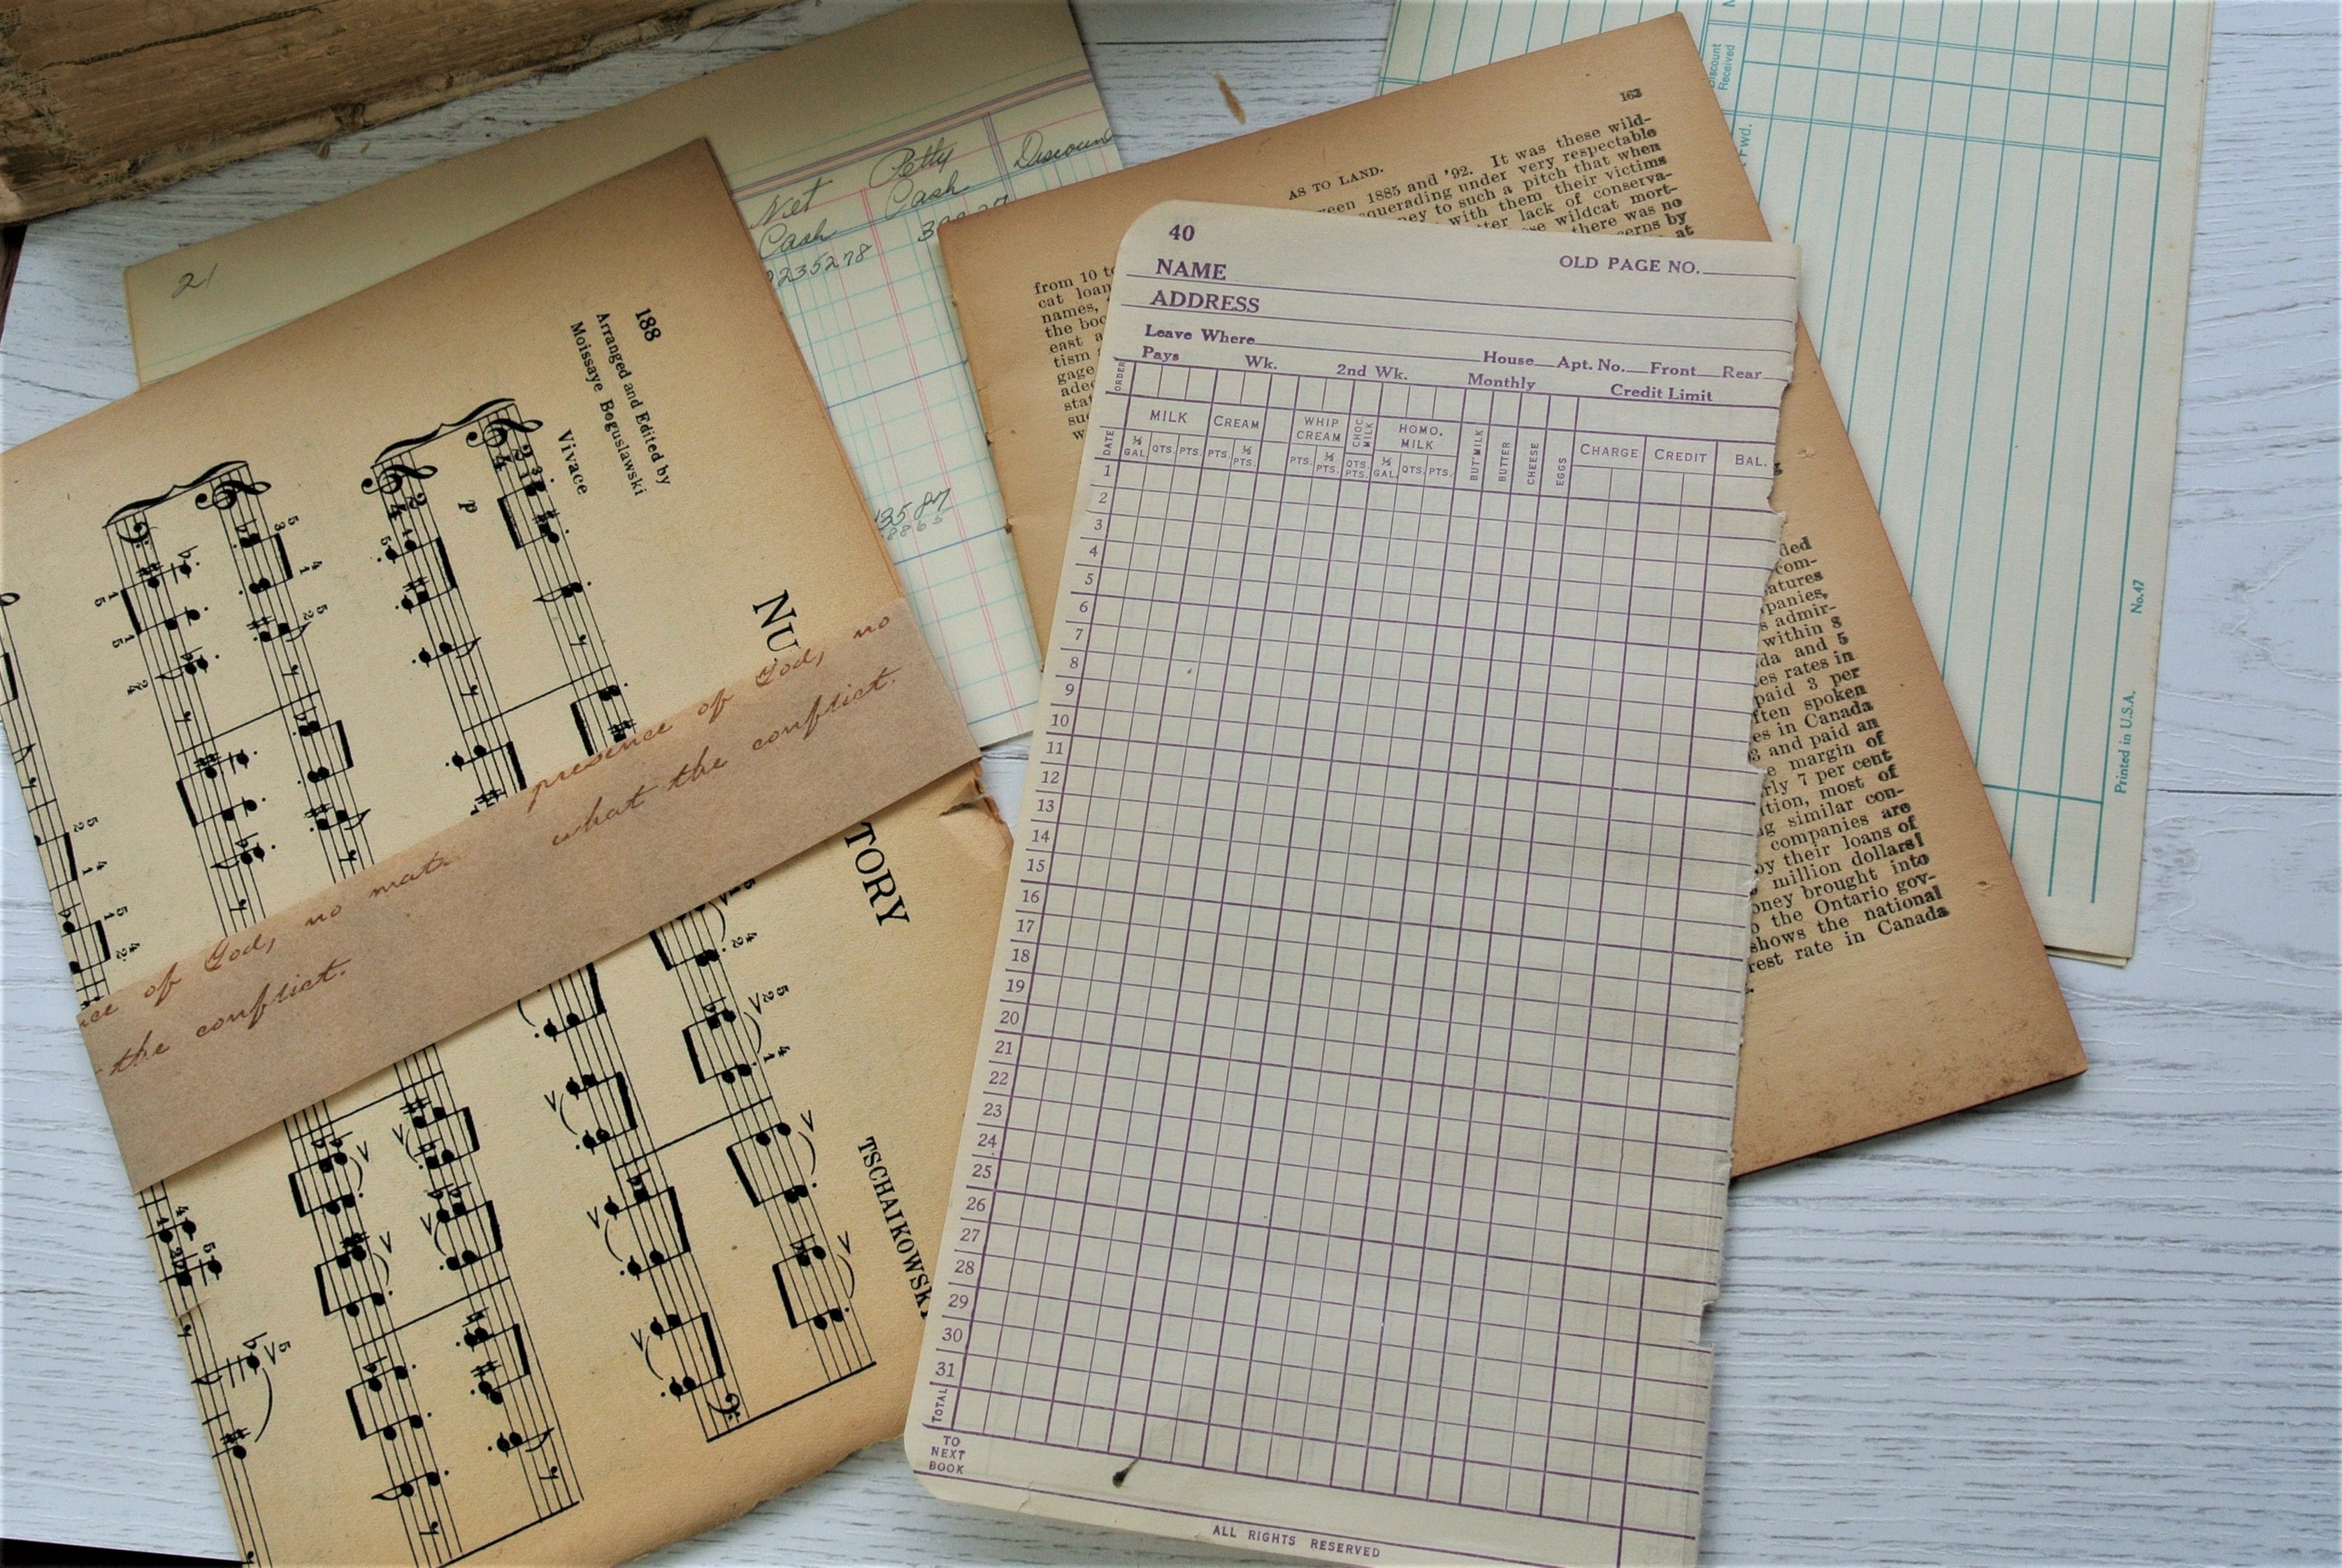 21
Net
Cash
Petty
Cash
Discoun
235278
188
Arranged and Edited by
Moissaye Boguslawski
Vivace
p
NU
TORY
TSCHAIKOWSK
presence of God, no
what the conflict.
of God, no mat
the conflict.
163
AS TO LAND.
1885 and '92. It was these wild-
squerading under very respectable
to such a pitch that when
with them, their victims
lack of conserva-
wildcat mort-
there was no
by
at
from 10 to
cat loan
names,
the
east
tism
gage
ded
com-
panies,
admir-
within 8
and 5
rates in
paid 3 per
often spoken
in Canada
3 and paid an
margin of
7 per cent
most of
similar con-
companies are
by their loans of
million dollars!
brought into
the Ontario gov-
shows the national
rate in Canada
Discount
Received
Fwd.
No.47
Printed in U.S.A.
40
NAME
OLD PAGE NO.
ADDRESS
Leave Where House Apt. No. Front Rear
Pays Wk. 2nd Wk. Monthly Credit Limit
ORDER
MILK CREAM WHIP CREAM CHOC MILK HOMO. MILK BUT'MILK BUTTER CHEESE EGGS CHARGE CREDIT BAL.
DATE ½ GAL. QTS. PTS. PTS. ½ PTS. PTS. ½ PTS. QTS. PTS. ½ GAL. QTS. PTS.
1
2
3
4
5
6
7
8
9
10
11
12
13
14
15
16
17
18
19
20
21
22
23
24
25
26
27
28
29
30
31
TOTAL
TO
NEXT
BOOK
ALL RIGHTS RESERVED